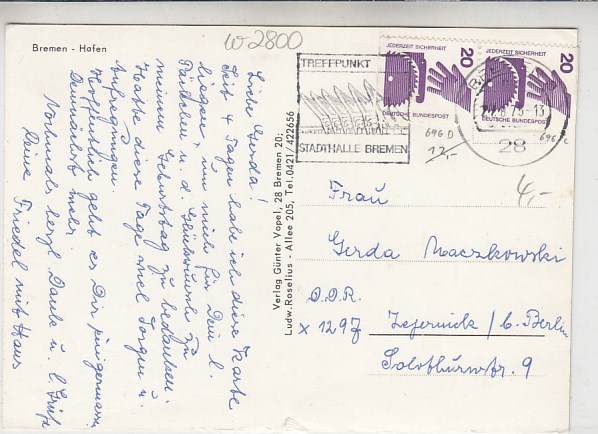 Bremen - Hafen
W 2800
Liebe Gerda!
Seit 4 Tagen habe ich diese Karte
liegen um mich für Dein l.
Päckchen u. d. Glückwünsche zu
meinem Geburtstag zu bedanken.
Hatte diese Tage viel Sorgen u.
Aufregungen.
Hoffentlich geht es Dir einigermaßen.
Demnächst mehr.
Nochmals herzl. Dank u. l. Grüße
Deine Friedel mit Hans
Verlag Günter Vopel, 28 Bremen 20;
Ludw.-Roselius - Allee 205, Tel. 0421/422656
TREFFPUNKT
STADTHALLE BREMEN
JEDERZEIT SICHERHEIT
20
DEUTSCHE BUNDESPOST
JEDERZEIT SICHERHEIT
20
DEUTSCHE BUNDESPOST
75-13
28
696 D
12,-
696 C
4,-
Frau
Gerda Maczkowski
D.D.R.
x 1297 Zepernick / b. Berlin
Solothurnstr. 9